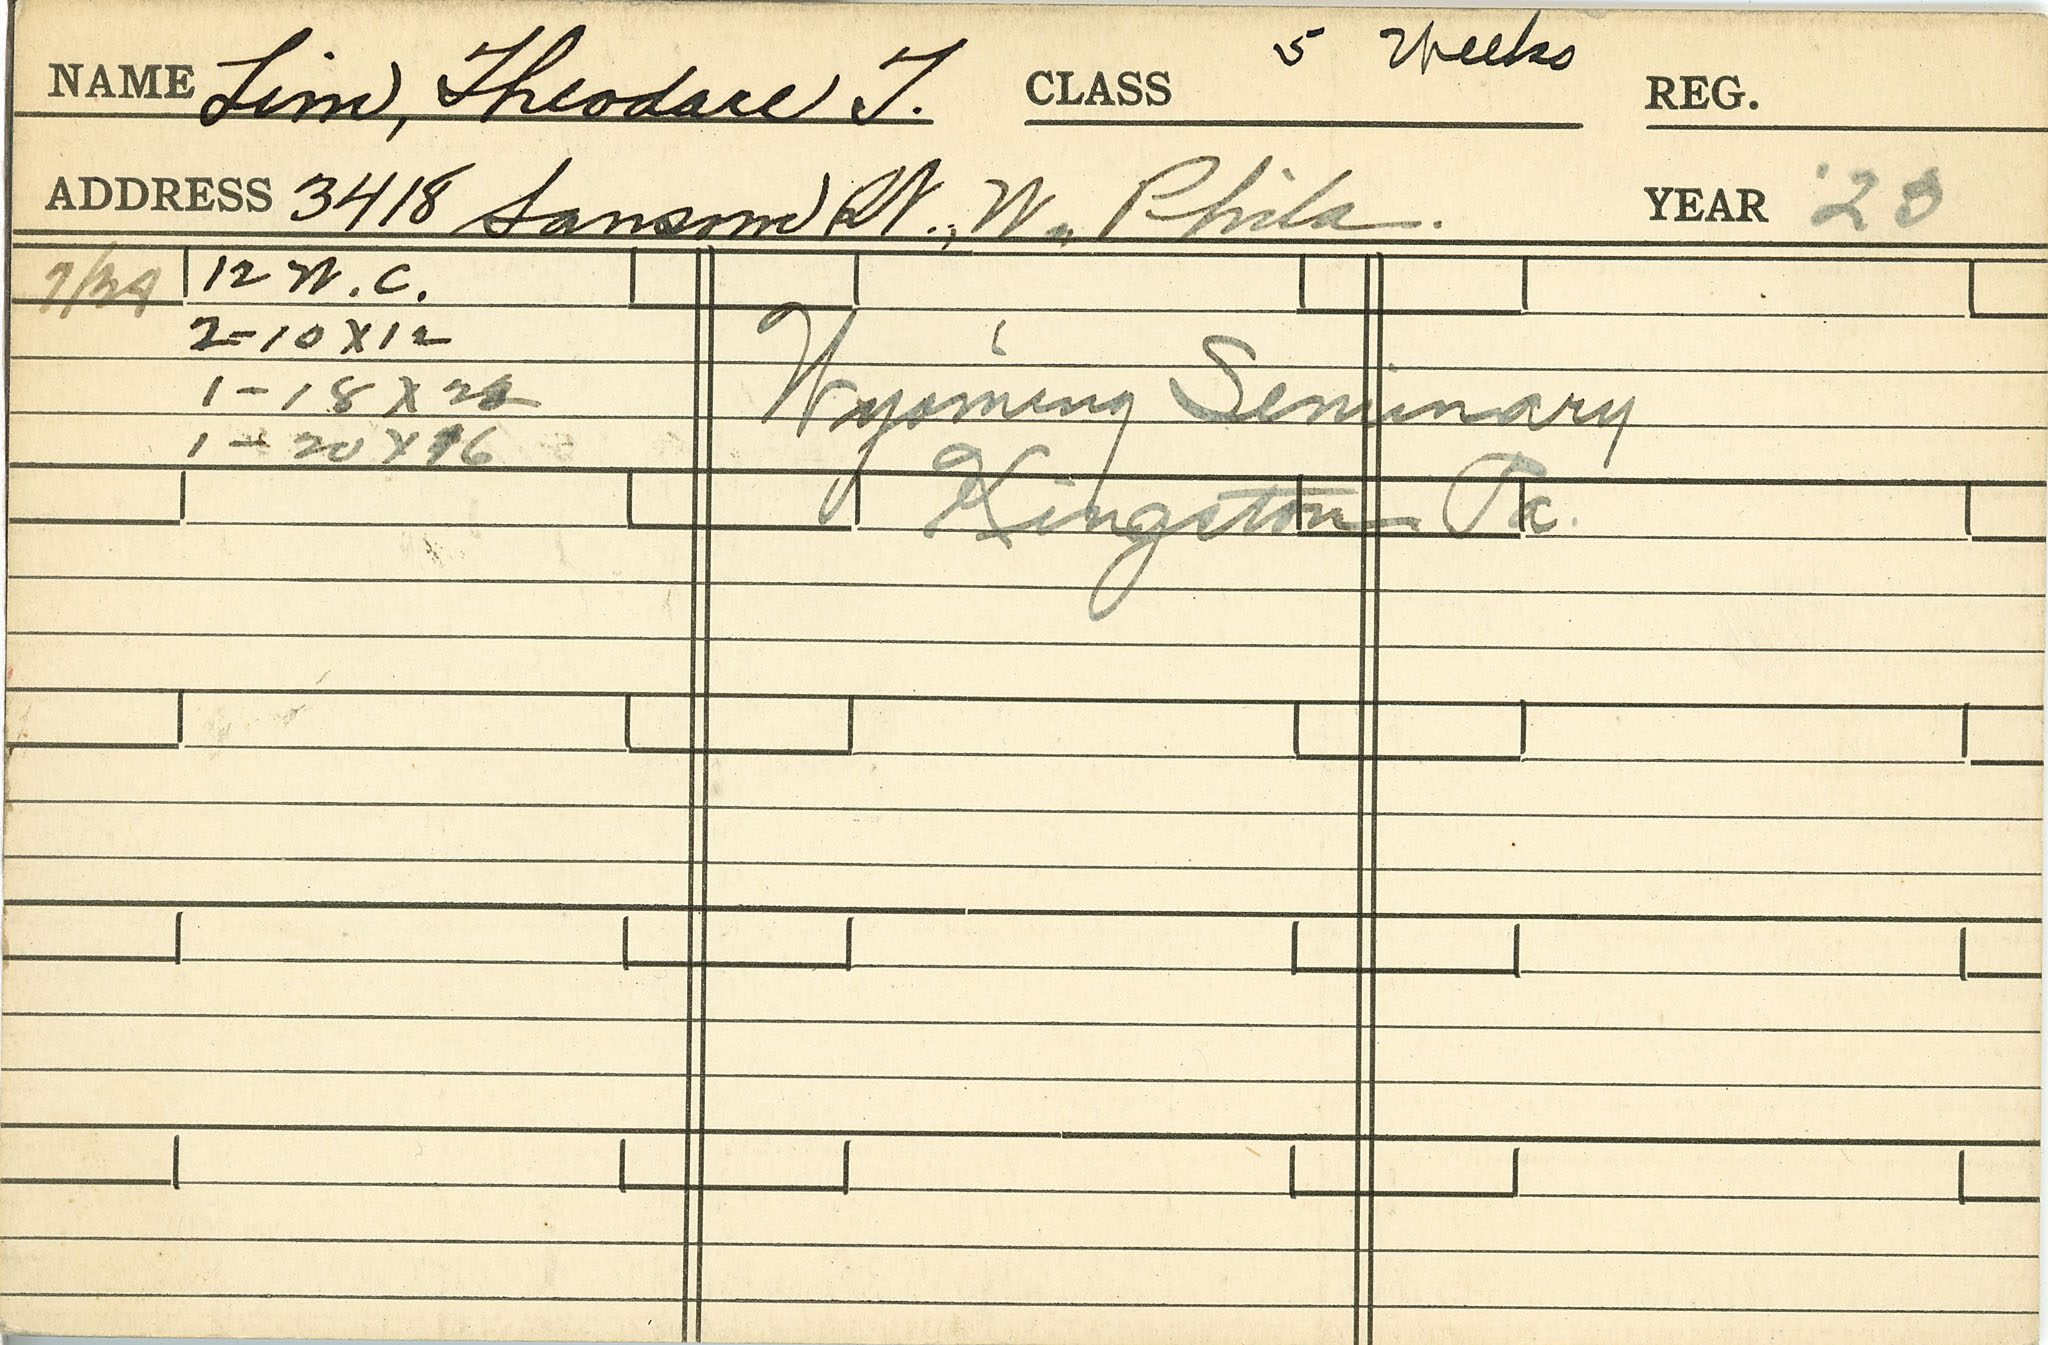 NAME Lim, Theodore T. CLASS 5 Weeks REG.
ADDRESS 3418 Sansom St., W. Phila. YEAR '23
7/24 12 W.C.
2-10X12
1-18X
1-20X16
Wyoming Seminary
Kingston Pa.